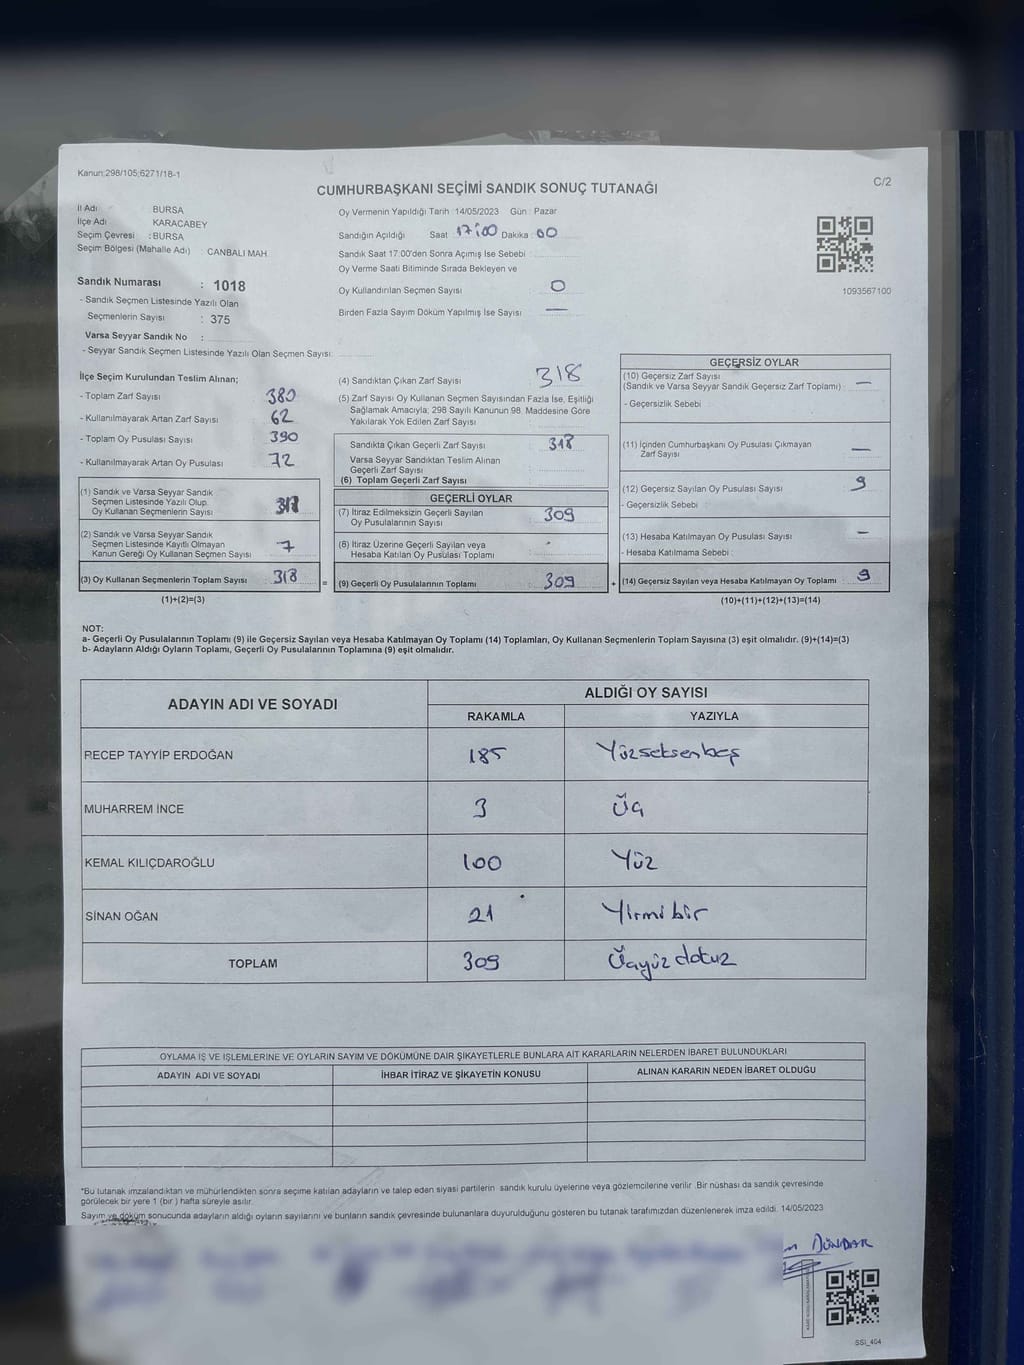 Kanun:298/105;6271/18-1
C/2
CUMHURBAŞKANI SEÇİMİ SANDIK SONUÇ TUTANAĞI
İl Adı BURSA
İlçe Adı KARACABEY
Seçim Çevresi : BURSA
Seçim Bölgesi (Mahalle Adı) CANBALI MAH.
Sandık Numarası : 1018
- Sandık Seçmen Listesinde Yazılı Olan
Seçmenlerin Sayısı : 375
Varsa Seyyar Sandık No :
- Seyyar Sandık Seçmen Listesinde Yazılı Olan Seçmen Sayısı:
Oy Vermenin Yapıldığı Tarih :14/05/2023 Gün : Pazar
Sandığın Açıldığı Saat 17:00 Dakika : 00
Sandık Saat 17.00'den Sonra Açımış İse Sebebi :
Oy Verme Saati Bitiminde Sırada Bekleyen ve
Oy Kullandırılan Seçmen Sayısı 0
Birden Fazla Sayım Döküm Yapılmış İse Sayısı —
1093567100
İlçe Seçim Kurulundan Teslim Alınan;
- Toplam Zarf Sayısı 380
- Kullanılmayarak Artan Zarf Sayısı 62
- Toplam Oy Pusulası Sayısı 390
- Kullanılmayarak Artan Oy Pusulası 72
(1) Sandık ve Varsa Seyyar Sandık
Seçmen Listesinde Yazılı Olup,
Oy Kullanan Seçmenlerin Sayısı
(2) Sandık ve Varsa Seyyar Sandık
Seçmen Listesinde Kayıtlı Olmayan
Kanun Gereği Oy Kullanan Seçmen Sayısı 7
(3) Oy Kullanan Seçmenlerin Toplam Sayısı 318
(1)+(2)=(3)
(4) Sandıktan Çıkan Zarf Sayısı 318
(5) Zarf Sayısı Oy Kullanan Seçmen Sayısından Fazla İse, Eşitliği
Sağlamak Amacıyla; 298 Sayılı Kanunun 98. Maddesine Göre
Yakılarak Yok Edilen Zarf Sayısı
Sandıkta Çıkan Geçerli Zarf Sayısı 318
Varsa Seyyar Sandıktan Teslim Alınan
Geçerli Zarf Sayısı
(6) Toplam Geçerli Zarf Sayısı
GEÇERLİ OYLAR
(7) İtiraz Edilmeksizin Geçerli Sayılan
Oy Pusulalarının Sayısı 309
(8) İtiraz Üzerine Geçerli Sayılan veya
Hesaba Katılan Oy Pusulası Toplamı
= (9) Geçerli Oy Pusulalarının Toplamı 309
GEÇERSİZ OYLAR
(10) Geçersiz Zarf Sayısı
(Sandık ve Varsa Seyyar Sandık Geçersiz Zarf Toplamı) : —
- Geçersizlik Sebebi :
(11) İçinden Cumhurbaşkanı Oy Pusulası Çıkmayan
Zarf Sayısı —
(12) Geçersiz Sayılan Oy Pusulası Sayısı 9
- Geçersizlik Sebebi :
(13) Hesaba Katılmayan Oy Pusulası Sayısı —
- Hesaba Katılmama Sebebi :
+ (14) Geçersiz Sayılan veya Hesaba Katılmayan Oy Toplamı 9
(10)+(11)+(12)+(13)=(14)
NOT:
a- Geçerli Oy Pusulalarının Toplamı (9) ile Geçersiz Sayılan veya Hesaba Katılmayan Oy Toplamı (14) Toplamları, Oy Kullanan Seçmenlerin Toplam Sayısına (3) eşit olmalıdır. (9)+(14)=(3)
b- Adayların Aldığı Oyların Toplamı, Geçerli Oy Pusulalarının Toplamına (9) eşit olmalıdır.
ADAYIN ADI VE SOYADI ALDIĞI OY SAYISI
RAKAMLA YAZIYLA
RECEP TAYYİP ERDOĞAN 185 Yüzseksenbeş
MUHARREM İNCE 3 Üç
KEMAL KILIÇDAROĞLU 100 Yüz
SİNAN OĞAN 21 Yirmi bir
TOPLAM 309 Üçyüz dokuz
OYLAMA İŞ VE İŞLEMLERİNE VE OYLARIN SAYIM VE DÖKÜMÜNE DAİR ŞİKAYETLERLE BUNLARA AİT KARARLARIN NELERDEN İBARET BULUNDUKLARI
ADAYIN ADI VE SOYADI İHBAR İTİRAZ VE ŞİKAYETİN KONUSU ALINAN KARARIN NEDEN İBARET OLDUĞU
*Bu tutanak imzalandıktan ve mühürlendikten sonra seçime katılan adayların ve talep eden siyasi partilerin sandık kurulu üyelerine veya gözlemcilerine verilir. Bir nüshası da sandık çevresinde
görülecek bir yere 1 (bir ) hafta süreyle asılır.
Sayım ve döküm sonucunda adayların aldığı oyların sayılarını ve bunların sandık çevresinde bulunanlara duyurulduğunu gösteren bu tutanak tarafımızdan düzenlenerek imza edildi. 14/05/2023
DÜNDAR
SSİ_404